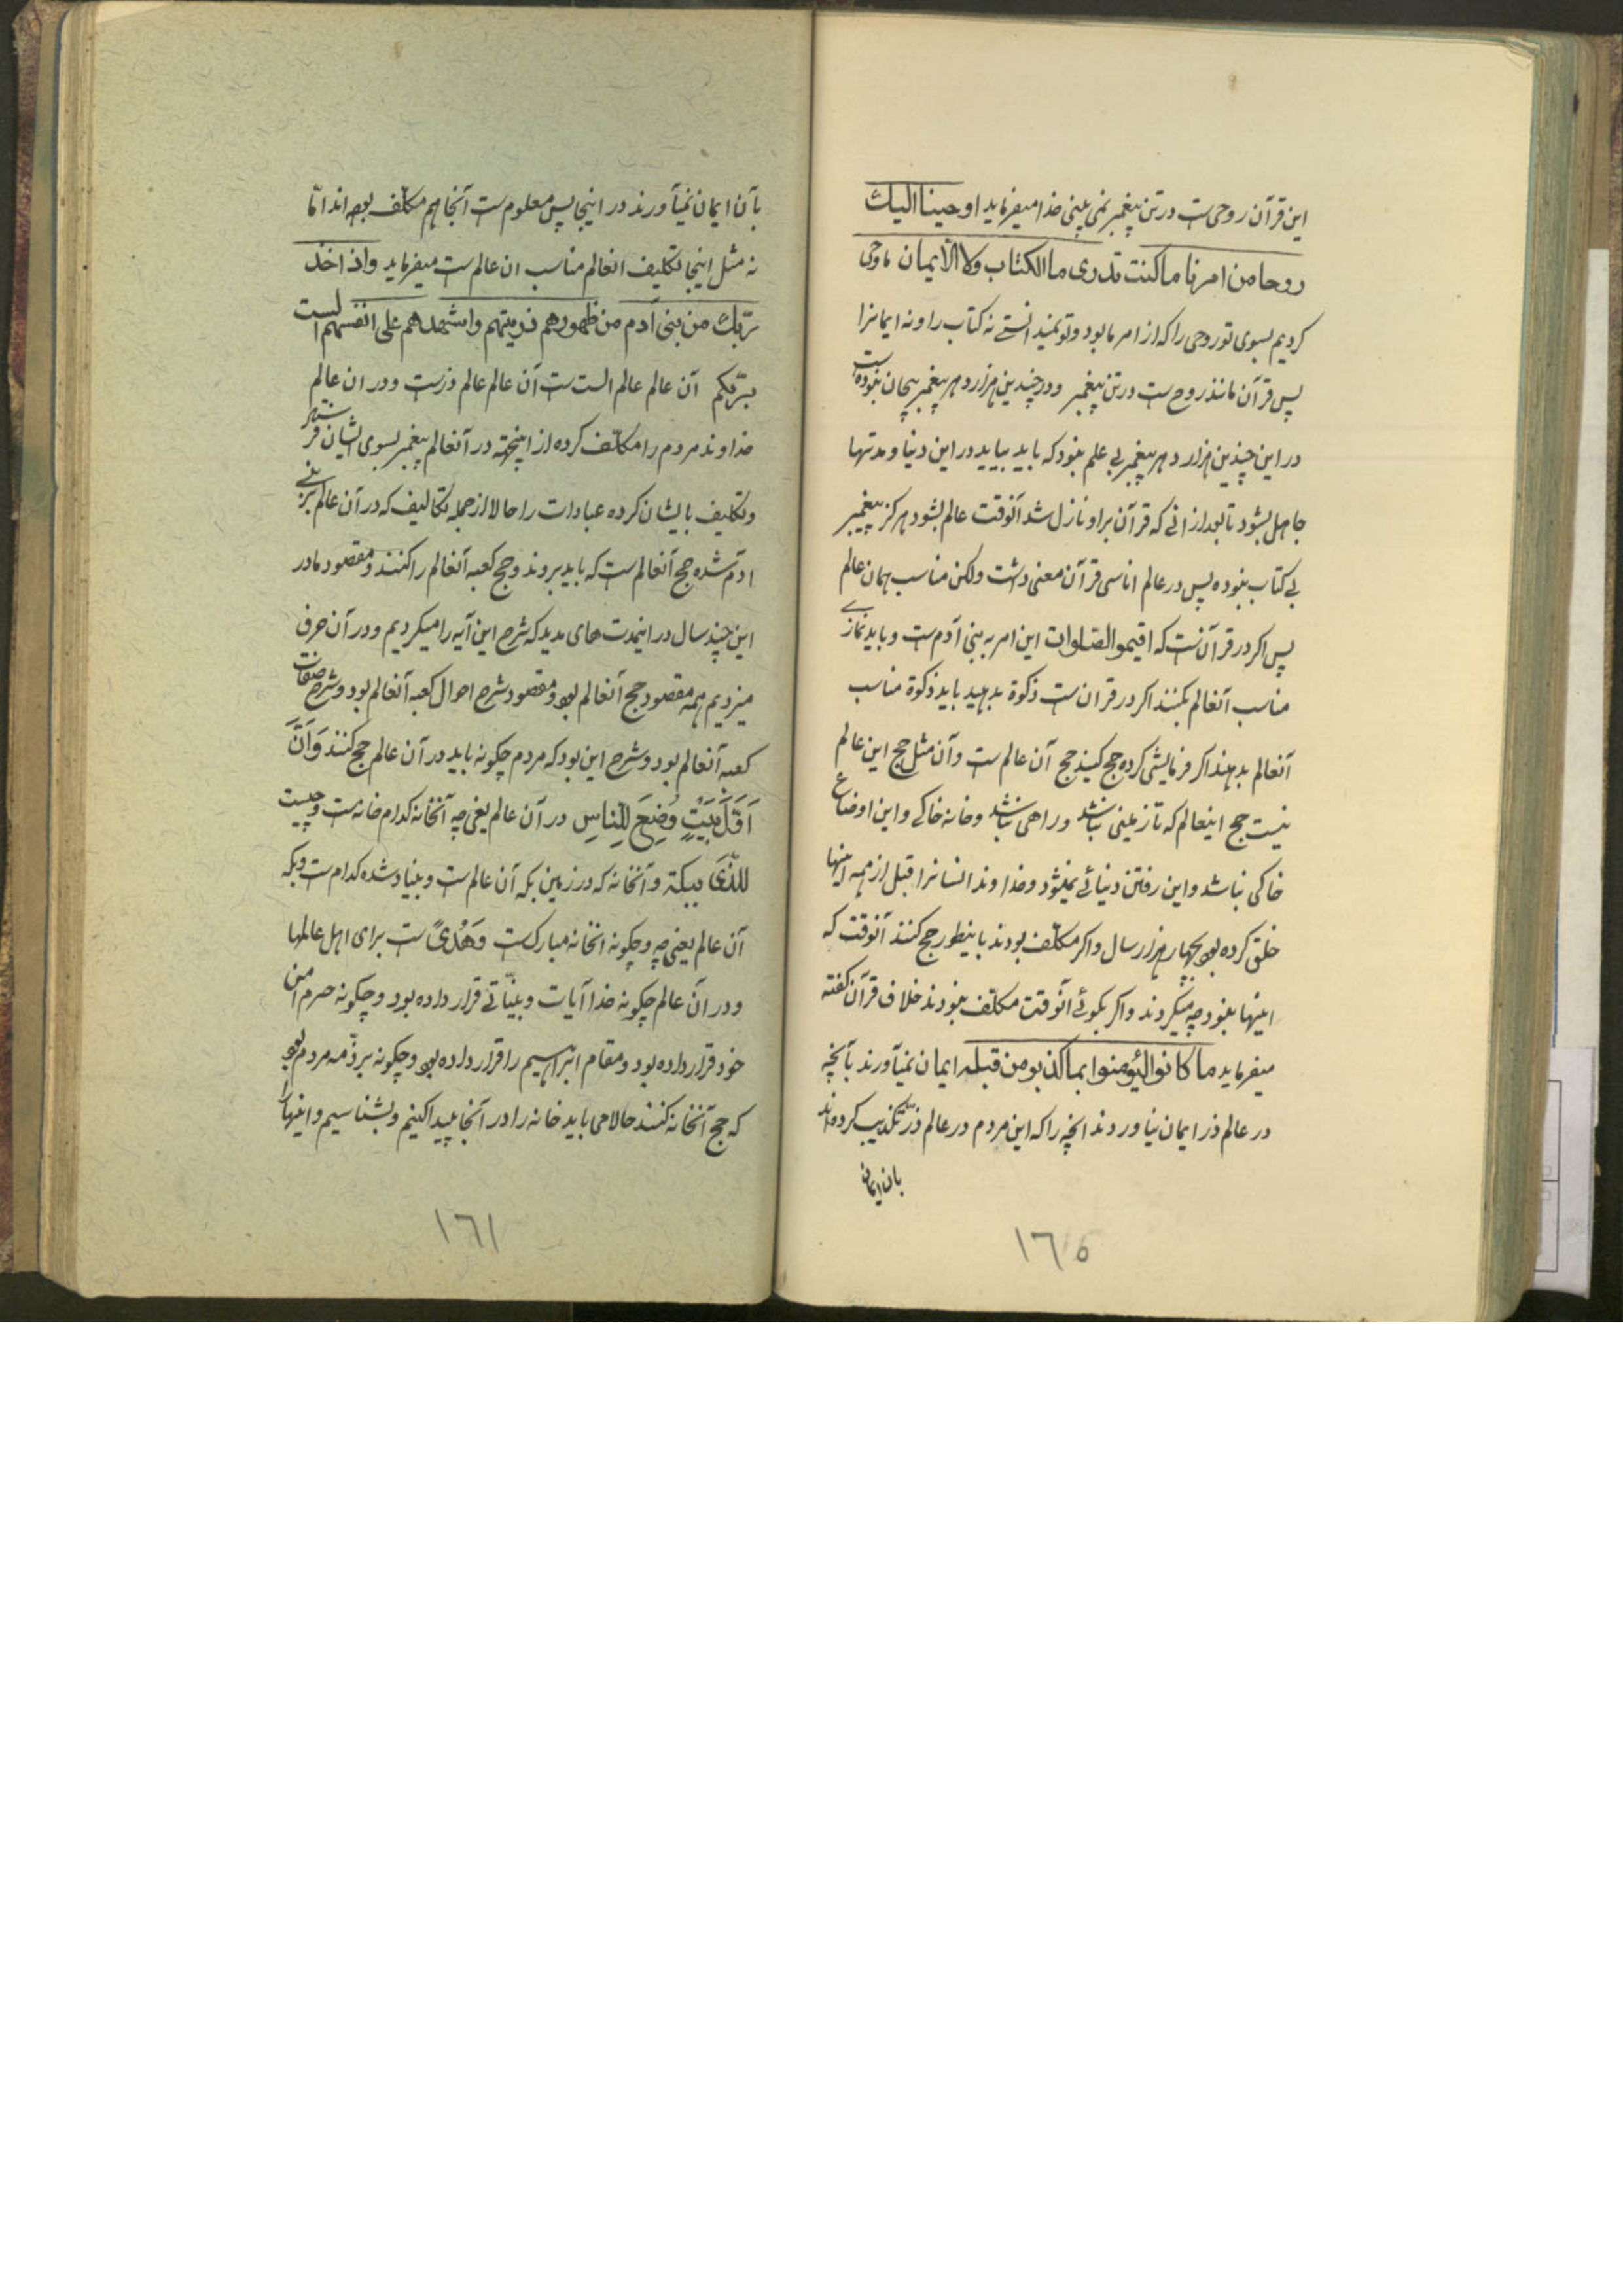 این قرآن روحی ست در تن پیغمبر نمی بینی خدا میفرماید اوحینا الیک
روحا من امرنا ما کنت تدری ما الکتاب ولا الایمان ما وحی
کردیم بسوی تو روحی را که از امر ما بود و تو نمیدانستی نه کتاب را و نه ایمانرا
پس قرآن مانند روح ست در تن پیغمبر و در چندین هزار دهر پیغمبر بیجان نبوده ست
در این چندین هزار دهر پیغمبر بی علم نبود که باید بیاید در این دنیا و مدتها
جاهل بشود تا بعد از انی که قرآن بر او نازل شد آنوقت عالم بشود هرکز پیغمبر
بی کتاب نبوده پس در عالم اناسی قرآن معنی داشت ولکن مناسب همان عالم
پس اکر در قرآنست که اقیموا الصلوات این امر به بنی آدم ست و باید نمازی
مناسب آنعالم بکنند اکر در قران ست زکوة بدهید باید زکوة مناسب
آنعالم بدهند اکر فرمایشی کرده حج کنید حج آن عالم ست و آن مثل حج این عالم
نیست حج اینعالم که تا زمینی نباشد و راهی نباشد و خانه خاکی و این اوضاع
خاکی نباشد و این رفتن دنیائی نمیشود و خداوند انسانرا قبل از همه اینها
خلق کرده بود بچهار هزار سال و اکر مکلف بودند باینطور حج کنند آنوقت که
اینها نبود چه میکردند و اکر بکوئی آنوقت مکلف نبودند خلاف قرآن کفته
میفرماید ما کانوا لیؤمنوا بما کذبو من قبله ایمان نمیآورند بآنچه
در عالم ذر ایمان نیاوردند انچه را که این مردم در عالم ذر تکذیب کرده اند
بان ایمان
١٦٥
بآن ایمان نمیآورند در اینجا پس معلوم ست آنجا هم مکلف بوده اند اما
نه مثل اینجا تکلیف انعالم مناسب ان عالم ست میفرماید واذ اخذ
ربک من بنی آدم من ظهورهم ذریتهم واشهدهم علی انفسهم الست
بربکم آن عالم عالم الست ست آن عالم عالم ذرست و در ان عالم
خداوند مردم را مکلف کرده از اینجهته در آنعالم پیغمبر بسوی ایشان فرستاد
و تکلیف بایشان کرده عبادات را حالا از جمله تکالیف که در آن عالم بر بنی
ادم شده حج آنعالم ست که باید بروند و حج کعبه آنعالم را کنند و مقصود ما در
این چند سال در اینمدت های مدید که شرح این آیه را میکردیم و در آن حرف
میزدیم همه مقصود حج آنعالم بود و مقصود شرح احوال کعبه آنعالم بود و شرح صفات
کعبه آنعالم بود و شرح این بود که مردم چکونه باید در آن عالم حج کنند وَاَنَّ
اَوَّلَ بَیْتٍ وُضِعَ لِلنّاسِ در آن عالم یعنی چه آنخانه کدام خانه ست و چیست
للذی ببکة و آنخانه که در زمین بکه آن عالم ست و بنیاد شده کدام ست و بکه
آن عالم یعنی چه و چکونه انخانه مبارکست وَهُدیً ست برای اهل عالمها
و در آن عالم چکونه خدا آیات و بیّناتی قرار داده بود و چکونه حرم امن
خود قرار داده بود و مقام ابراهیم را قرار داده بود و چکونه بر ذمه مردم بود
که حج آنخانه کنند حالا می باید خانه را در آنجا پیدا کنیم و بشناسیم و اینها
١٦١